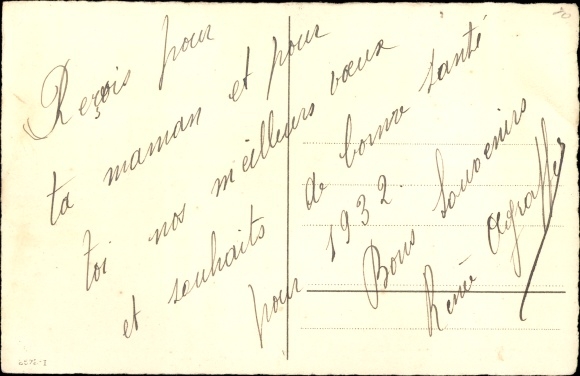 Reçois pour
ta maman et pour
toi nos meilleurs vœux
et souhaits de bonne santé
pour 1932.
Bons Souvenirs
René